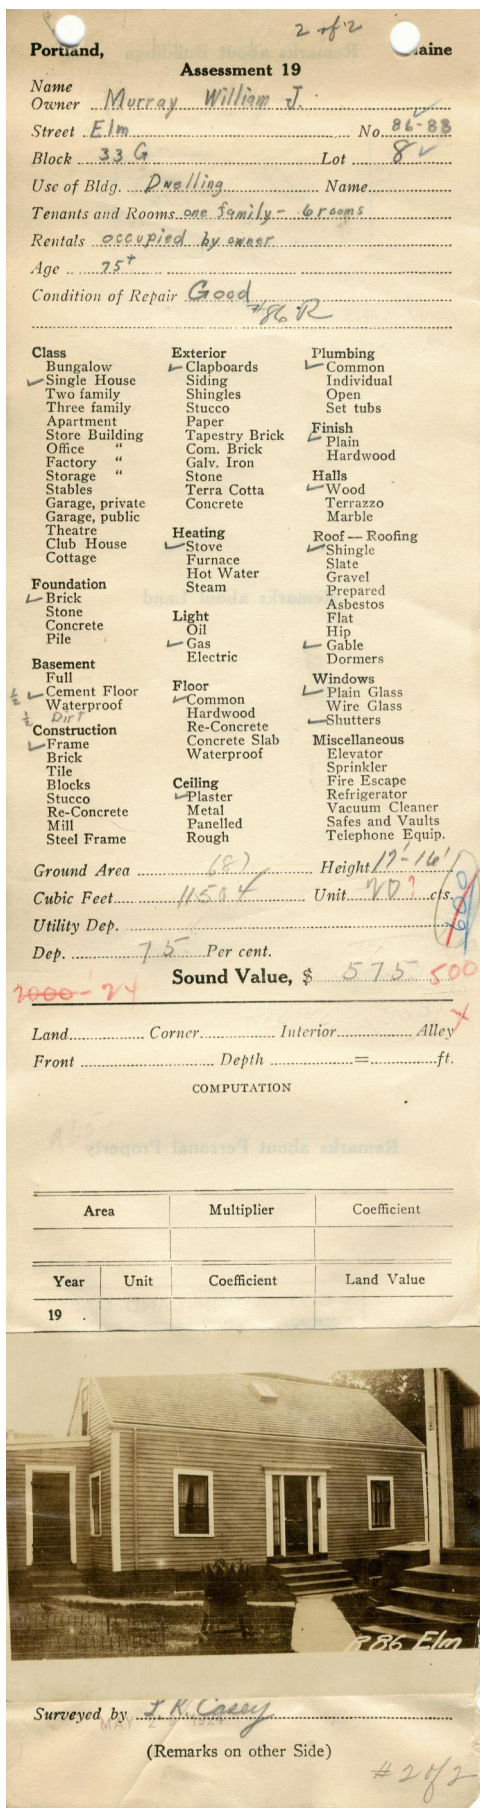 2 of 2
Portland, Maine
Assessment 19
Name
Owner Murray William J.
Street Elm No. 86-88
Block 33 G Lot 8
Use of Bldg. Dwelling Name
Tenants and Rooms one family - 6 rooms
Rentals occupied by owner
Age 75+
Condition of Repair Good
#86 R
Class
Bungalow
✓ Single House
Two family
Three family
Apartment
Store Building
Office "
Factory "
Storage "
Stables
Garage, private
Garage, public
Theatre
Club House
Cottage
Foundation
✓ Brick
Stone
Concrete
Pile
Basement
Full
½ ✓ Cement Floor
Waterproof
½ Dirt
Construction
✓ Frame
Brick
Tile
Blocks
Stucco
Re-Concrete
Mill
Steel Frame
Exterior
✓ Clapboards
Siding
Shingles
Stucco
Paper
Tapestry Brick
Com. Brick
Galv. Iron
Stone
Terra Cotta
Concrete
Heating
✓ Stove
Furnace
Hot Water
Steam
Light
Oil
✓ Gas
Electric
Floor
✓ Common
Hardwood
Re-Concrete
Concrete Slab
Waterproof
Ceiling
✓ Plaster
Metal
Panelled
Rough
Plumbing
✓ Common
Individual
Open
Set tubs
Finish
✓ Plain
Hardwood
Halls
✓ Wood
Terrazzo
Marble
Roof — Roofing
✓ Shingle
Slate
Gravel
Prepared
Asbestos
Flat
Hip
✓ Gable
Dormers
Windows
✓ Plain Glass
Wire Glass
✓ Shutters
Miscellaneous
Elevator
Sprinkler
Fire Escape
Refrigerator
Vacuum Cleaner
Safes and Vaults
Telephone Equip.
Ground Area 687 Height 17'-16'
Cubic Feet 11504 Unit 20? cts.
600
Utility Dep.
Dep. 75 Per cent.
Sound Value, $ 575 500
2000 - 24
Land Corner Interior Alley
Front Depth = ft.
COMPUTATION
Area Multiplier Coefficient
Year Unit Coefficient Land Value
19 .
R 86 Elm
Surveyed by T. K. Casey
(Remarks on other Side)
# 2 of 2